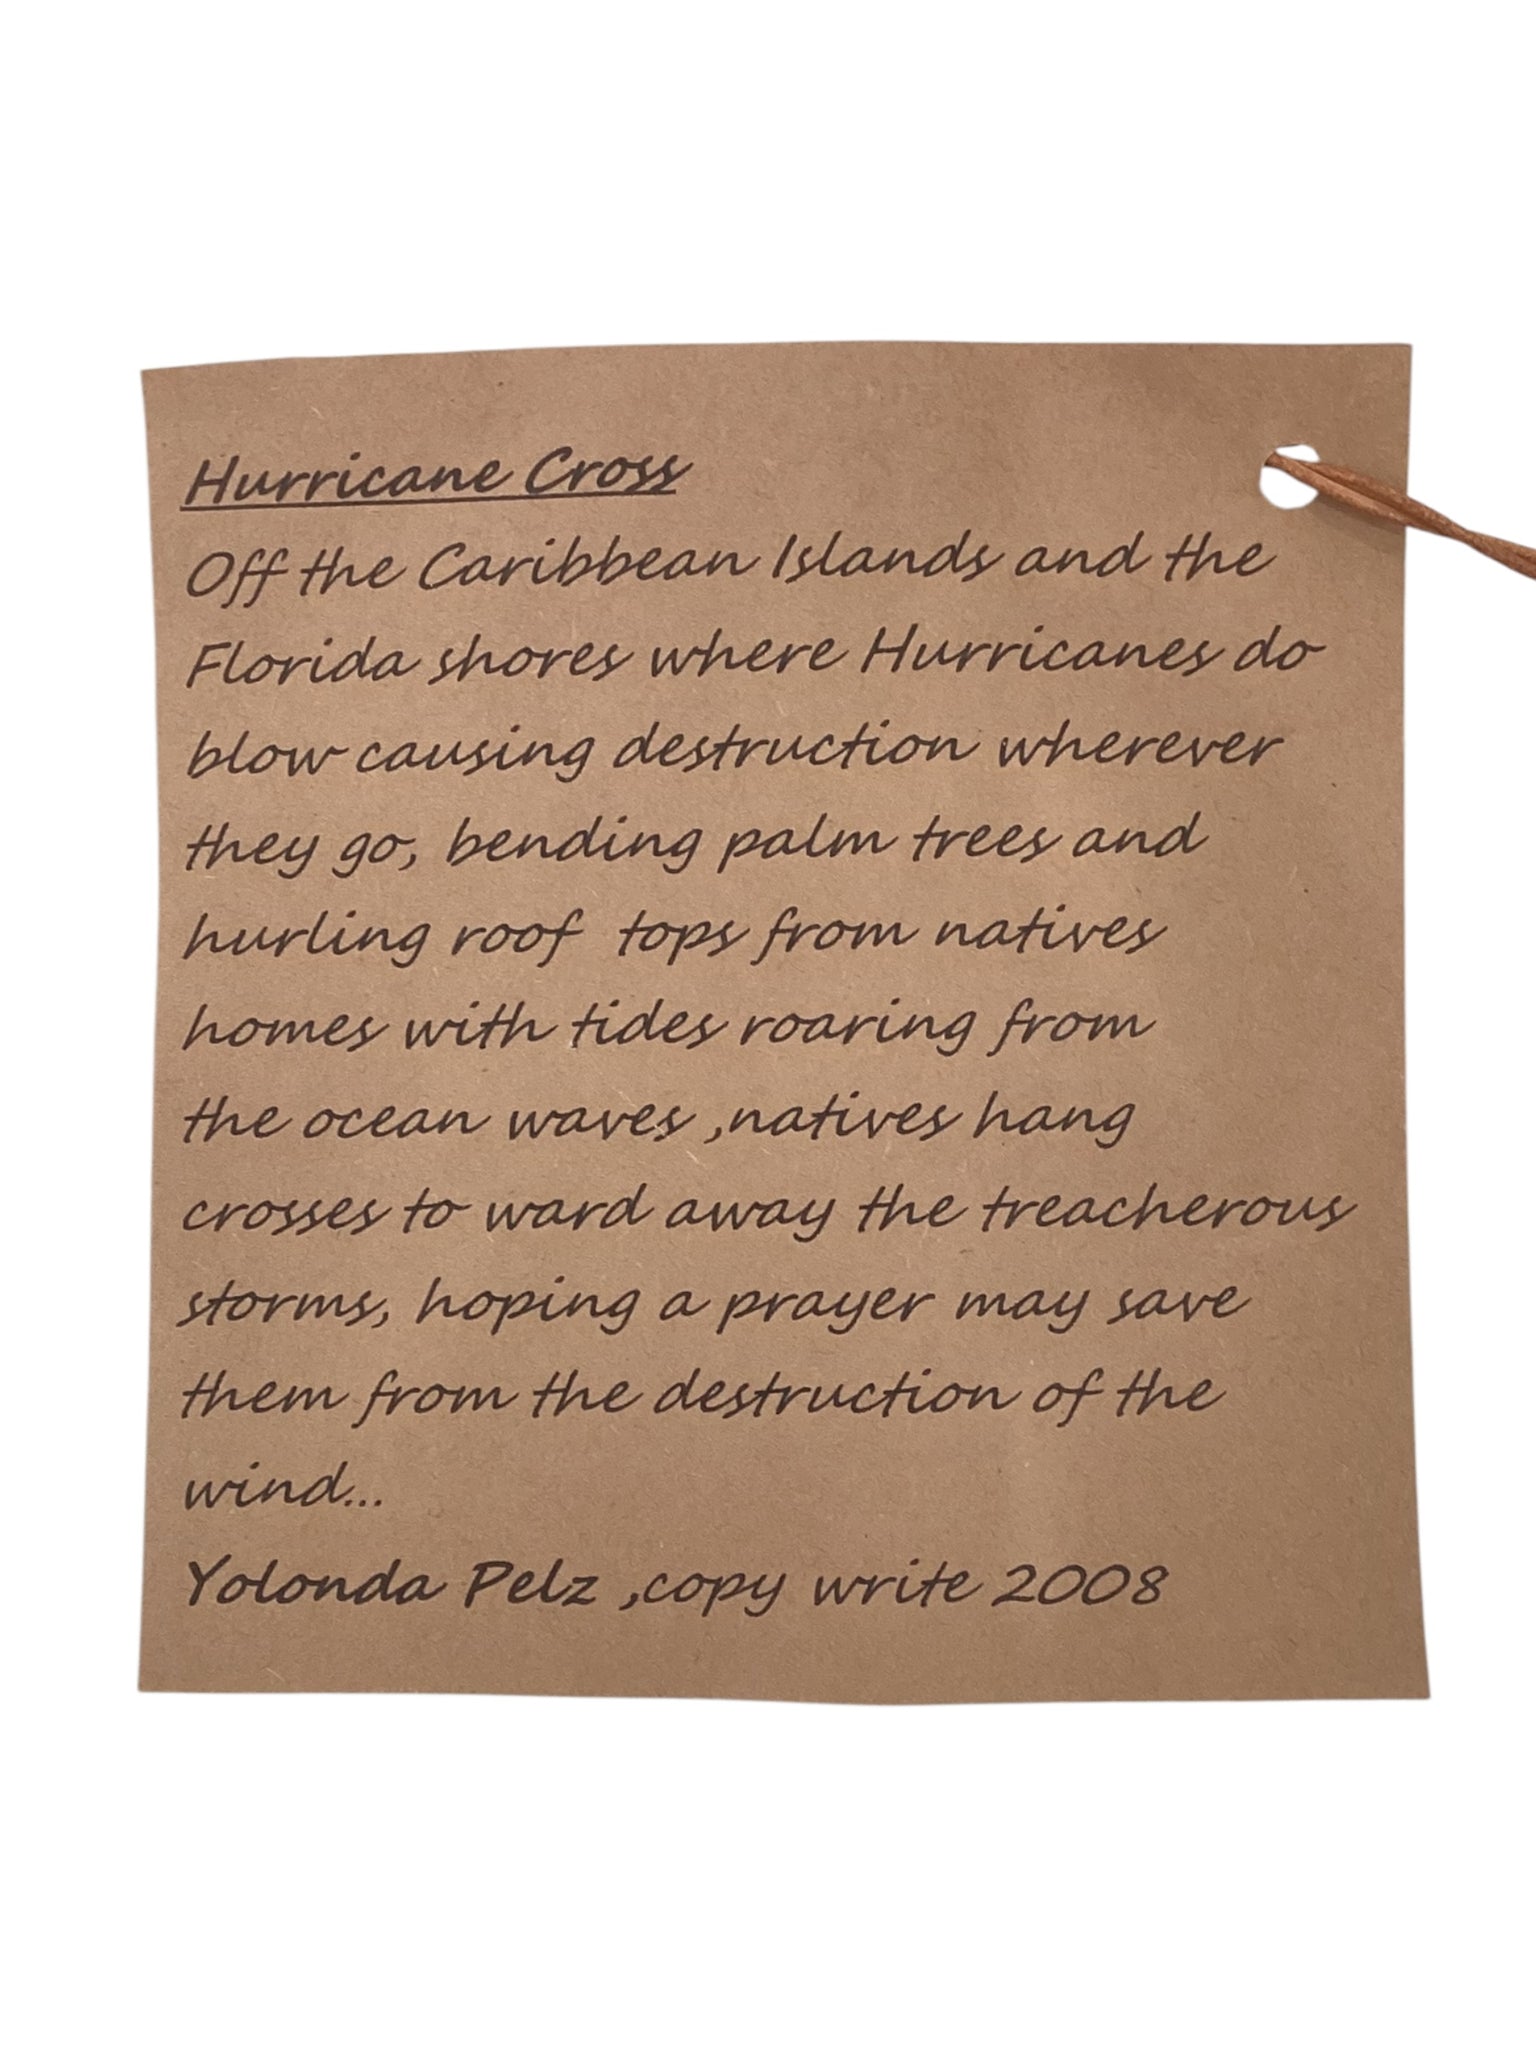 Hurricane Cross
Off the Caribbean Islands and the
Florida shores where Hurricanes do
blow causing destruction wherever
they go, bending palm trees and
hurling roof  tops from natives
homes with tides roaring from
the ocean waves ,natives hang
crosses to ward away the treacherous
storms, hoping a prayer may save
them from the destruction of the
wind...
Yolonda Pelz ,copy write 2008